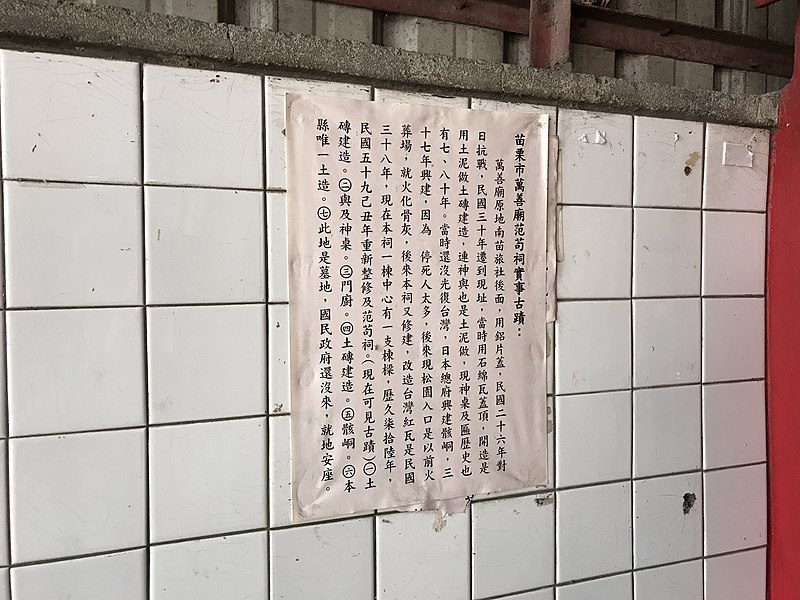 苗栗市萬善廟范苟祠實事古蹟：
萬善廟原地南苗旅社後面，用鋁片蓋，民國二十六年對
日抗戰，民國三十年遷到現址，當時用石綿瓦蓋頂，開造是
用土泥做土磚建造，連神與也是土泥做，現神桌及匾歷史也
有七、八十年。當時還沒光復台灣，日本總府興建骸峒，三
十七年興建，因為 停死人太多，後來現松園入口是以前火
葬場，就火化骨灰，後來本祠又修建，改造台灣紅瓦是民國
三十八年，現在本祠一棟中心有一支棟樑，歷久柒拾陸年，
民國五十九己丑年重新整修及范苟祠。（現在可見古蹟）㊀土
磚建造。㊁與及神桌。㊂門廚。㊃土磚建造。㊄骸峒。㊅本
縣唯一土造。㊆此地是墓地，國民政府還沒來，就地安座。